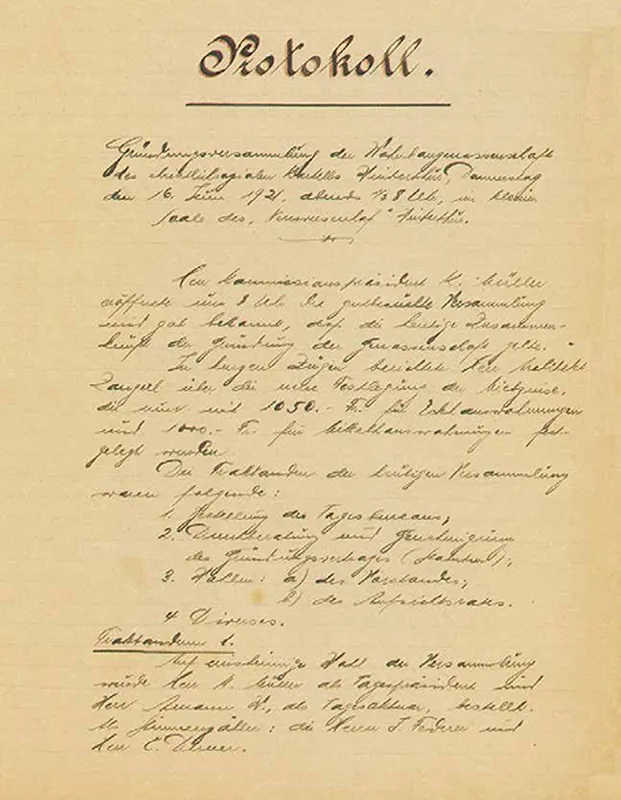 Protokoll.
Gründungsversammlung der Wohnbaugenossenschaft
des christlichsozialen Kartells Winterthur, Donnerstag
den 16. Juni 1921, abends ½ 8 Uhr, im kleinen
Saale des Winterthur.
Herr Kommissionspräsident K. Müller
eröffnete um 8 Uhr die gutbesuchte Versammlung
und gab bekannt, daß die heutige Zusammen-
kunft der Gründung der Genossenschaft gelte.
In kurzen Zügen berichtete Herr Architekt
Zangerl über die neue Festlegung der Mietzinse,
die nun mit 1050.- Fr. für Eckhauswohnungen
und 1000.- Fr. für Mittelhauswohnungen fest-
gelegt wurden.
Die Traktanden der heutigen Versammlung
waren folgende:
1. Bestellung des Tagesbureaus;
2. Durchberatung und Genehmigung
des Gründungsvertrages (Statuten);
3. Wahlen: a) des Vorstandes;
b) des Aufsichtsrates.
4. Diverses.
Traktandum 1.
Auf einstimmige Wahl der Versammlung
wurde Herr K. Müller als Tagespräsident und
Herr Amann W., als Tagesaktuar, bestellt.
Als Stimmenzähler: die Herrn J. Federer und
Herr C.